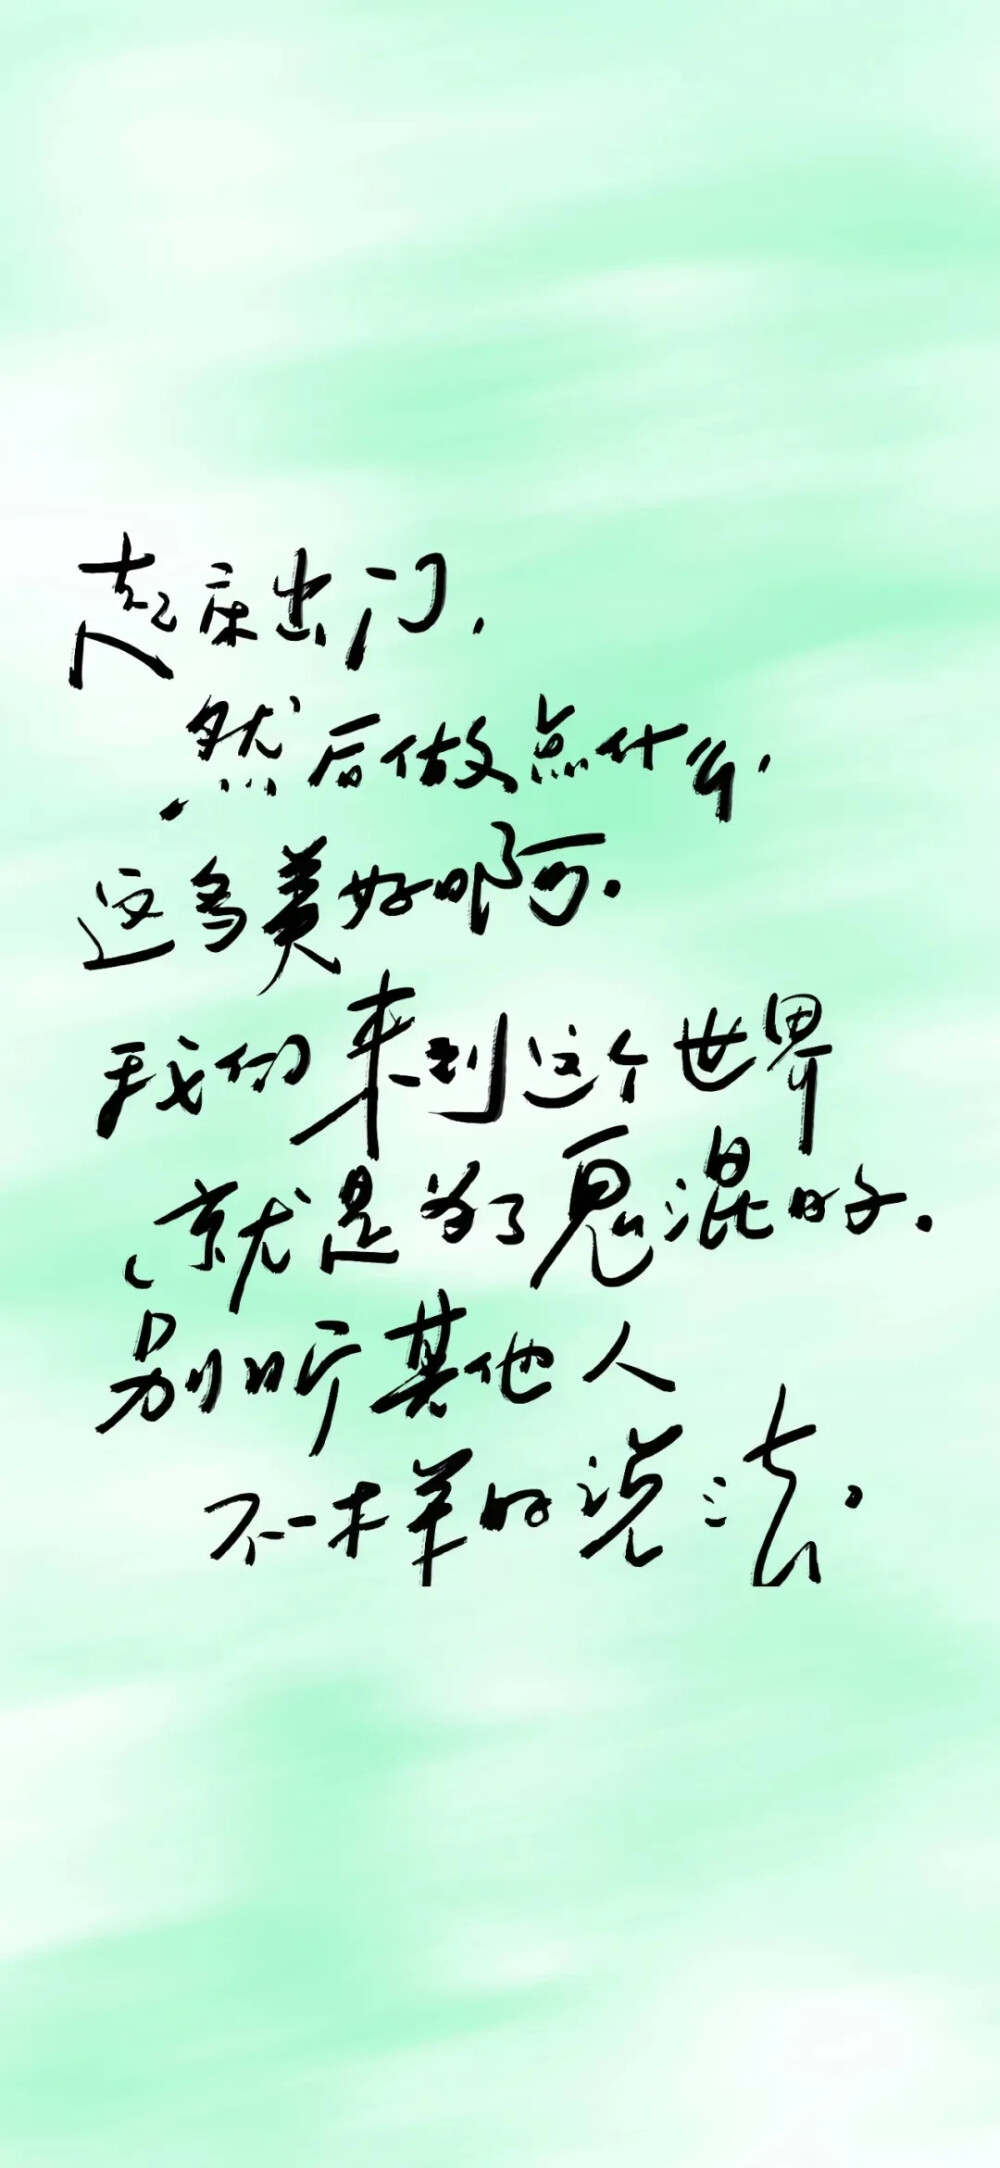 起床出门，
然后做点什么，
这多美好啊。
我们来到这个世界
就是为了鬼混的。
别听其他人
不一样的说法。